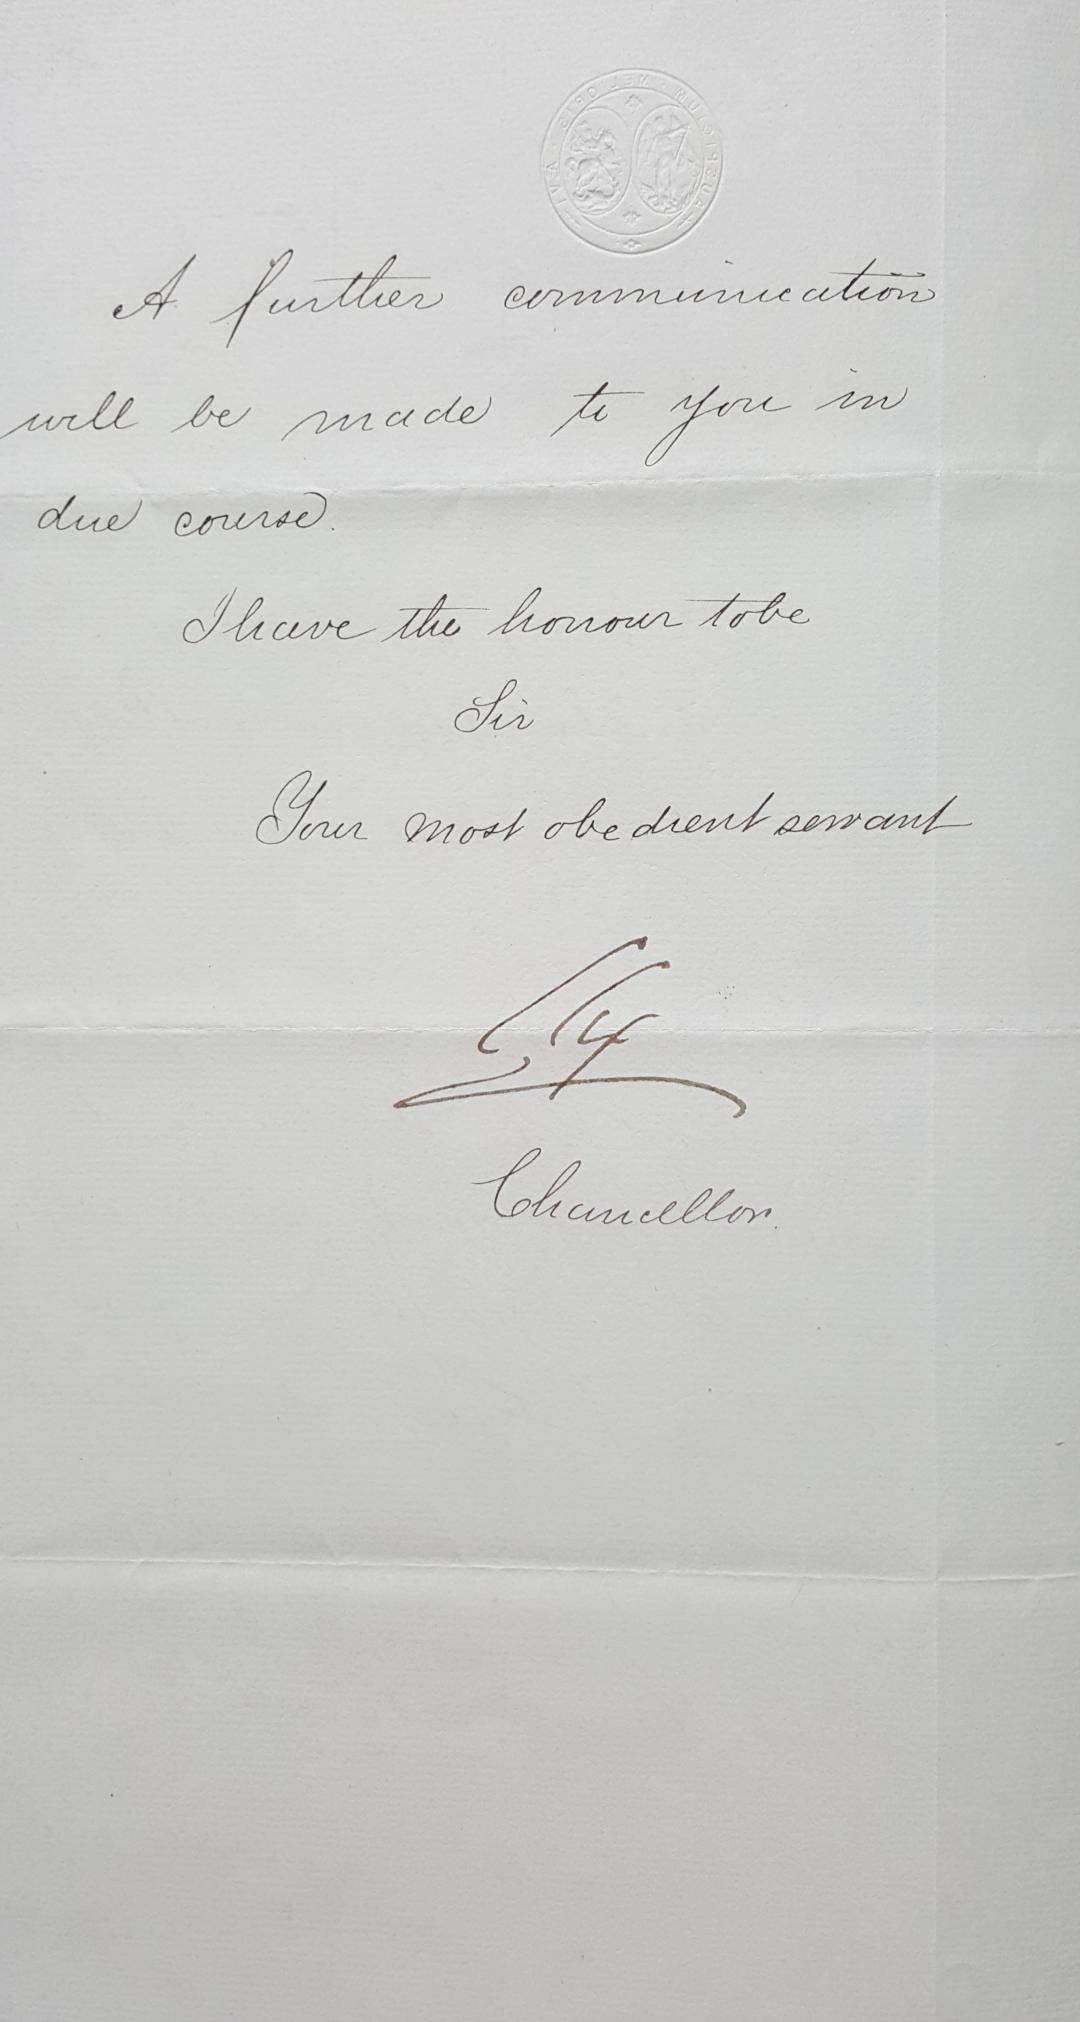 AUSPICIUM MELIORIS ÆVI
A further communication
will be made to you in
due course.
I have the honour to be
Sir
Your most obedient servant
Chancellor.